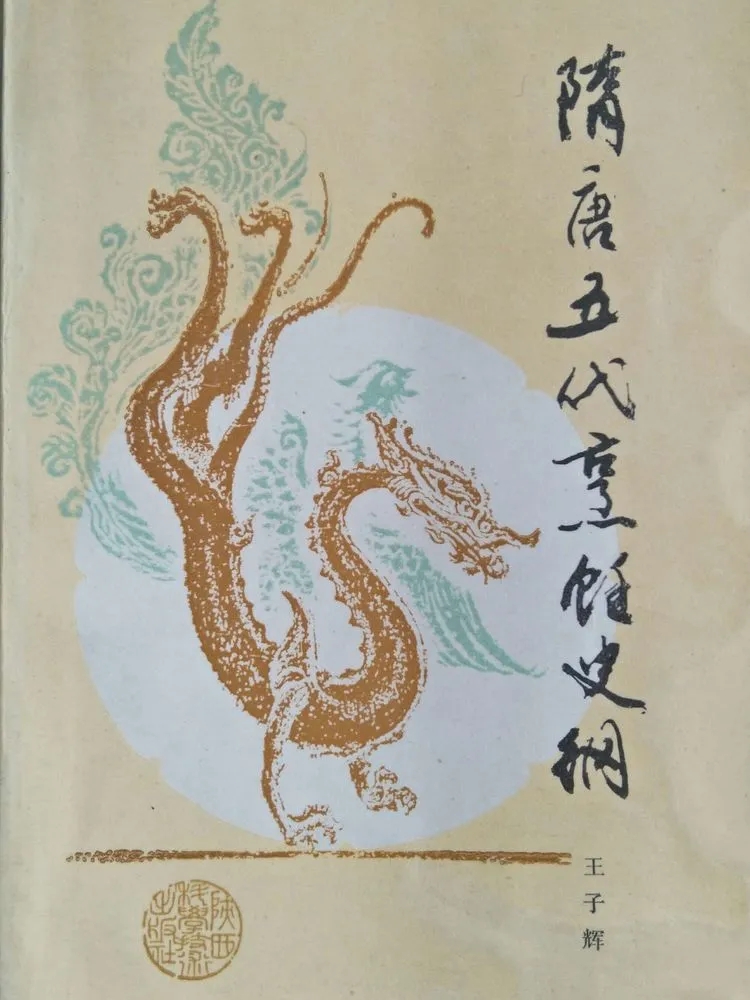 隋唐五代烹饪史纲
王子辉
陕西科学技术出版社